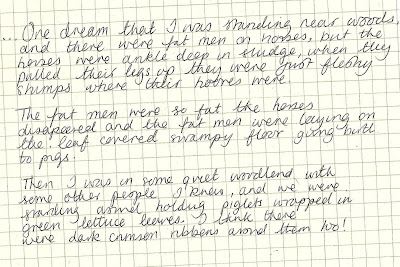 ... One dream that I was standing near woods,
and there were fat men on horses, but the
horses were ankle deep in sludge, when they
pulled their legs up they were just fleshy
stumps where their hooves were.
The fat men were so fat the horses
disappeared and the fat men were laying on
the leaf covered swampy floor giving birth
to pigs.
Then I was in some quiet woodland with
some other people I knew, and we were
standing around holding piglets wrapped in
green lettuce leaves. I think there
were dark crimson ribbons around them too!